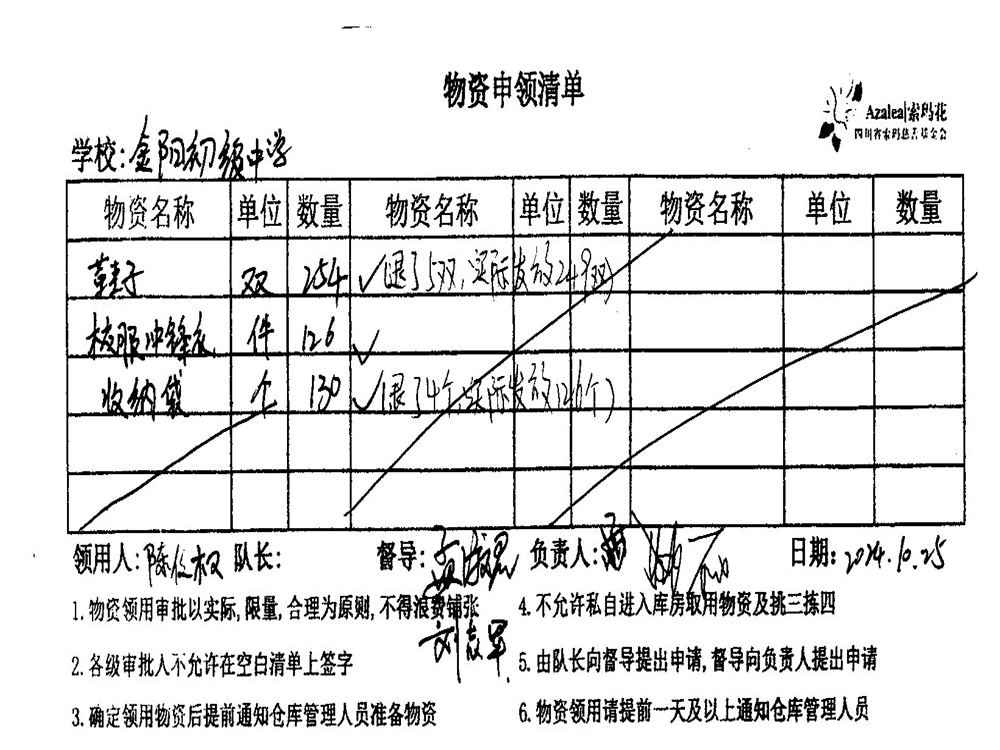 物资申领清单
Azalea|索玛花
四川省索玛慈善基金会
学校:金阳初级中学
物资名称 单位 数量 物资名称 单位 数量 物资名称 单位 数量
鞋子 双 254 ✓(退了5双,实际发放249双)
校服冲锋衣 件 126 ✓
收纳袋 个 130 ✓(退了4个,实际发放126个)
领用人:陈 权 队长: 督导: 负责人: 日期:2024.10.25
刘
1.物资领用审批以实际,限量,合理为原则,不得浪费铺张
4.不允许私自进入库房取用物资及挑三拣四
2.各级审批人不允许在空白清单上签字
5.由队长向督导提出申请,督导向负责人提出申请
3.确定领用物资后提前通知仓库管理人员准备物资
6.物资领用请提前一天及以上通知仓库管理人员